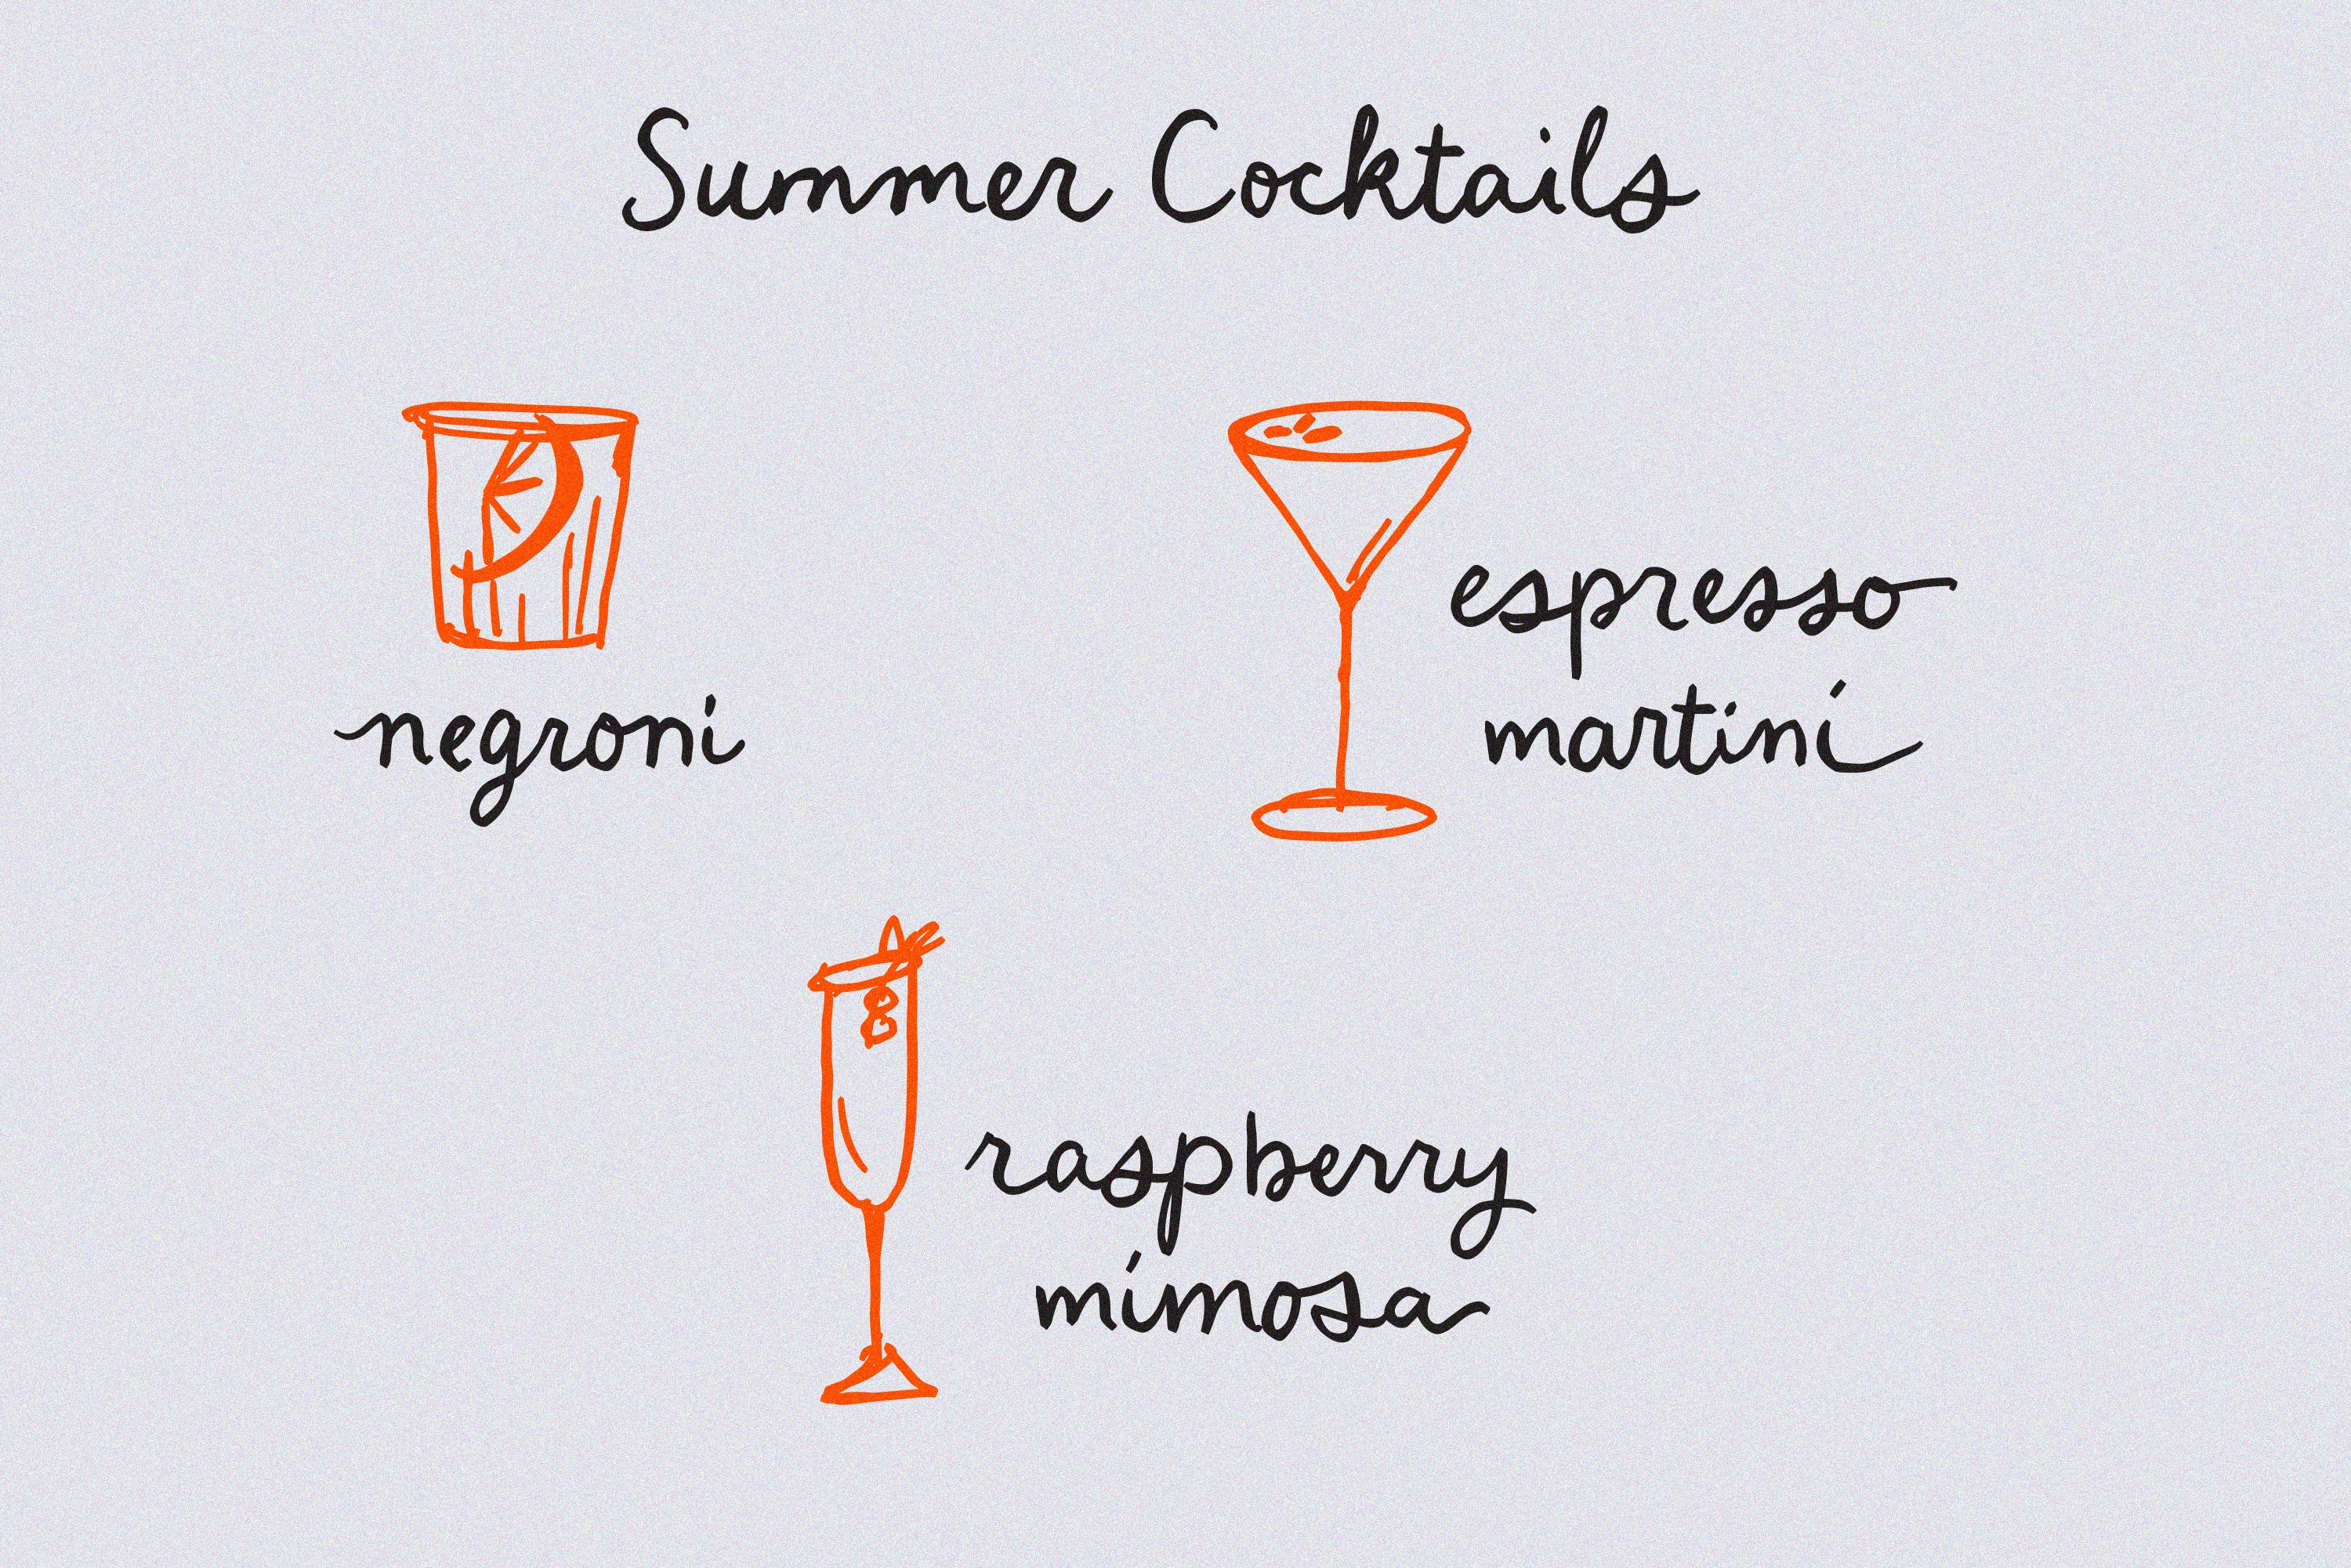 Summer Cocktails
negroni
espresso
martini
raspberry
mimosa